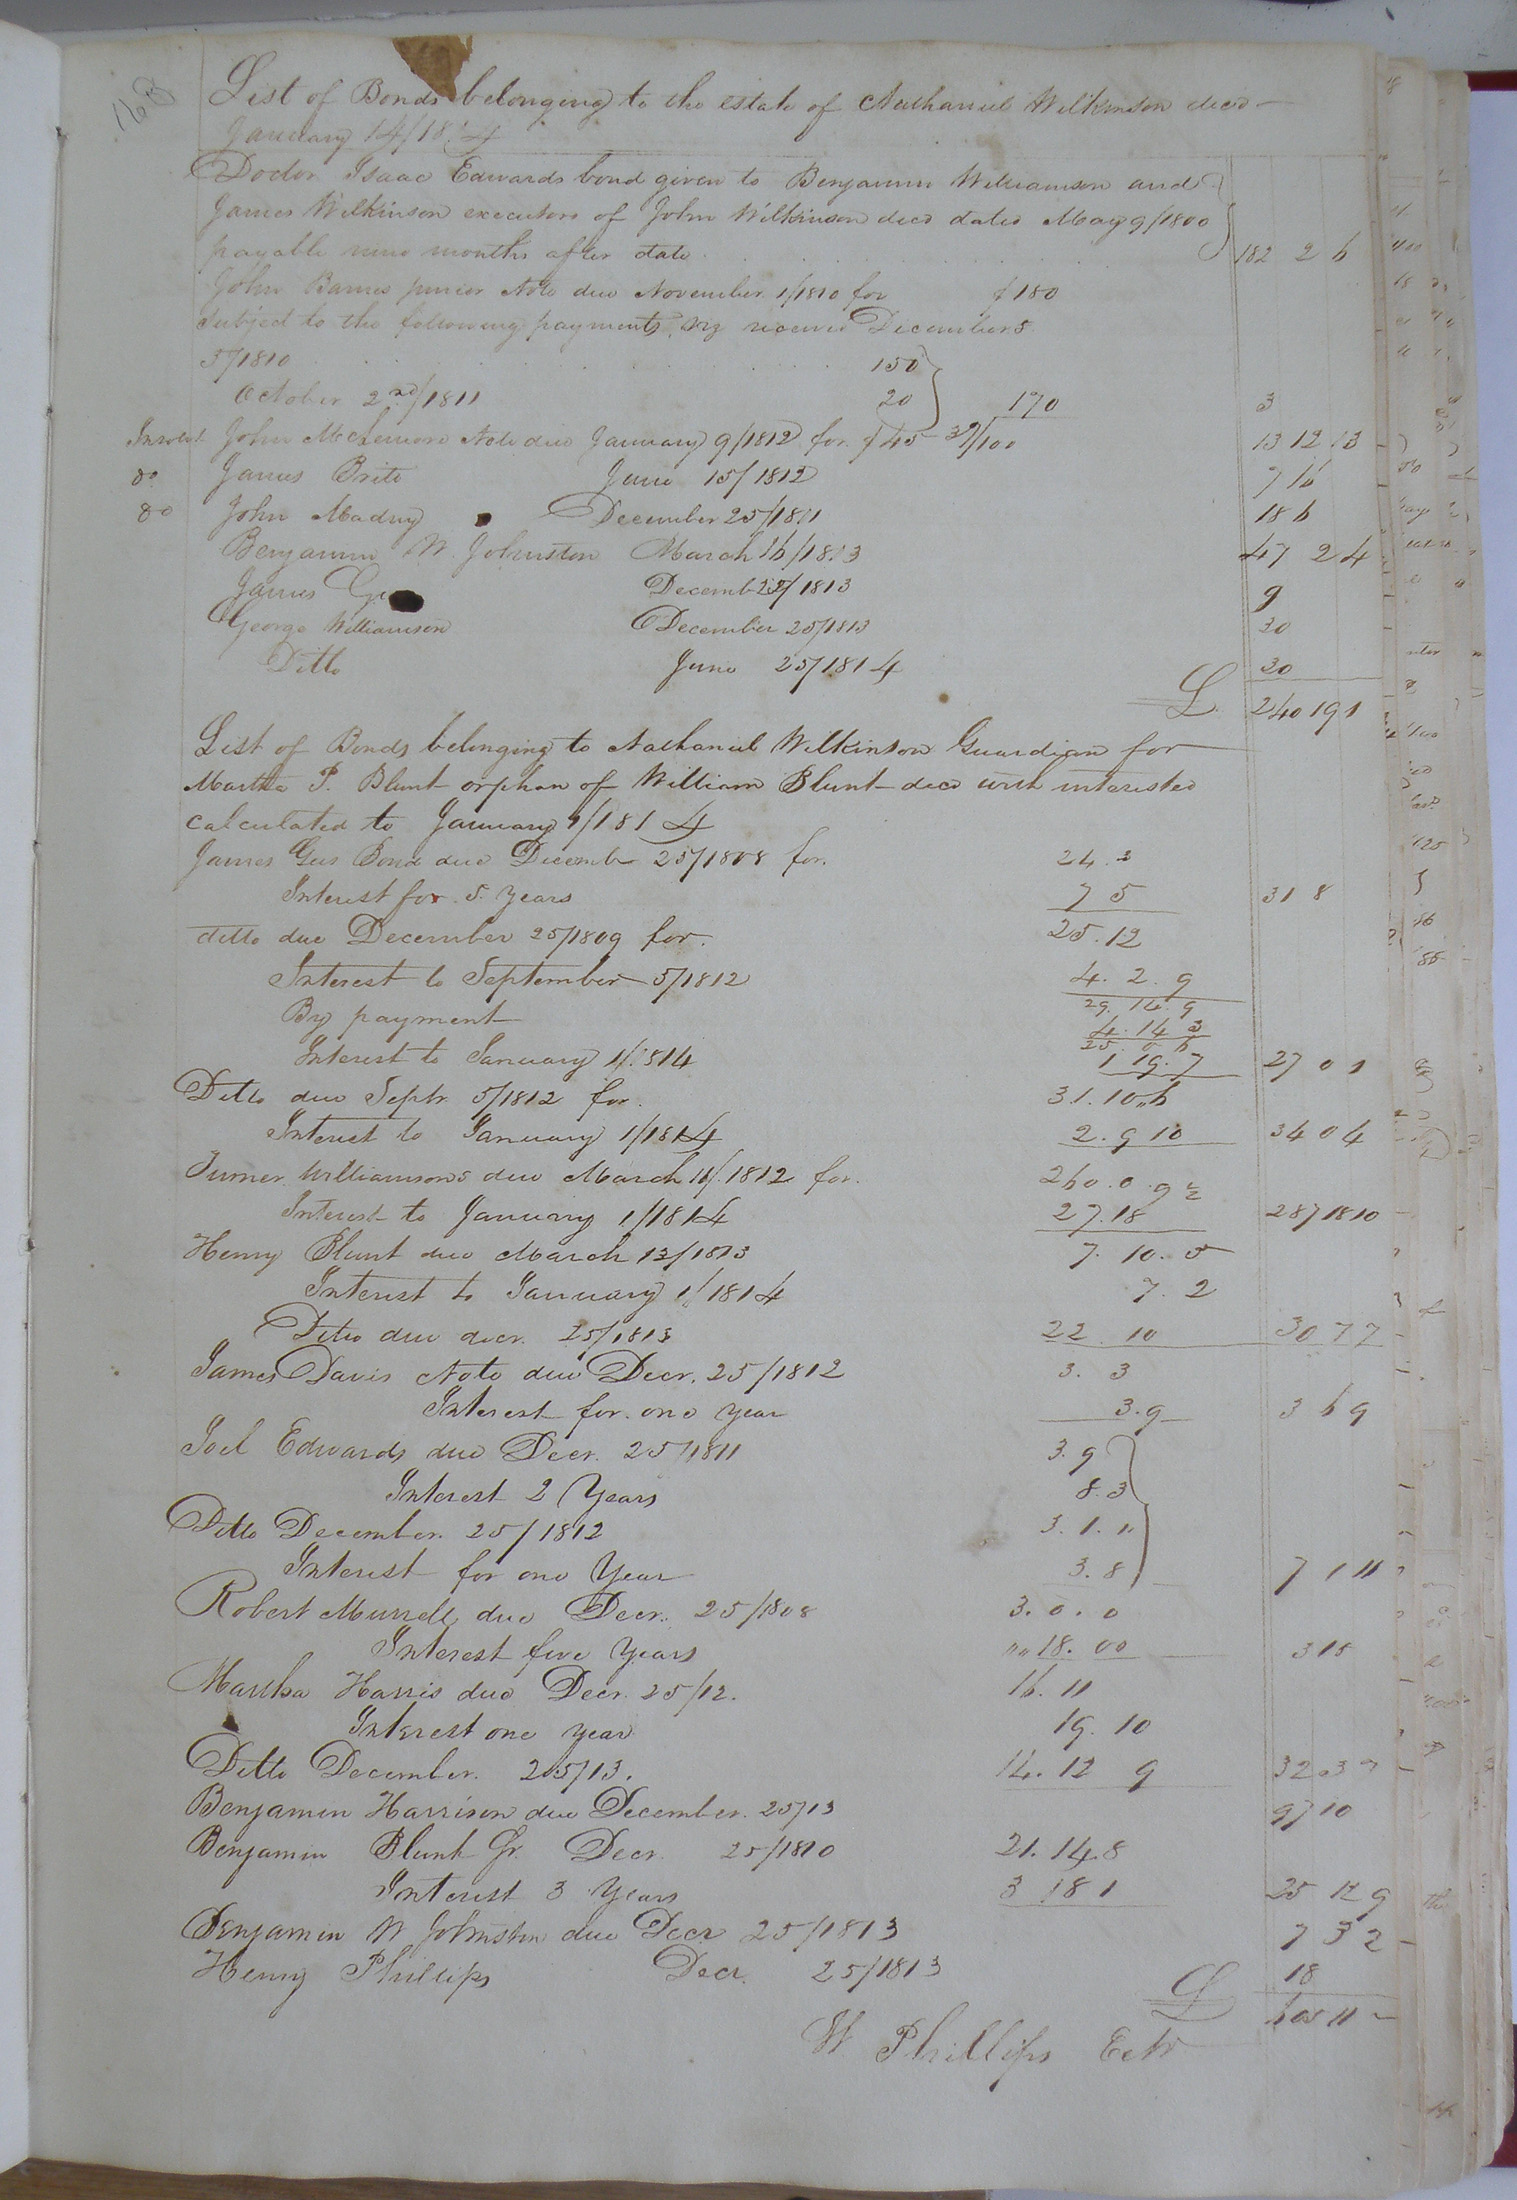 163
List of Bonds belonging to the estate of Nathaniel Wilkinson decd
January 14/1814
Doctor Isaac Edwards bond given to Benjamin Williamson and
James Wilkinson executors of John Wilkinson decd dated May 9/1800
payable nine months after date 182 2 6
John Barnes junior Note due November 1/1810 for $180
Subject to the following payments, viz received Decembers
5/1810 150
October 2nd/1811 20 170 3
Insolvt John McLemore Note due January 9/1812 for $45 39/100 13 12 13
do James Brite June 15/1812 7 16
do John Madry December 25/1811 18 6
Benjamin W. Johnston March 16/1813 47 2 4
James Decemb 25/1813 9
George Williamson December 25/1813 30
Ditto June 25/1814 30
£ 240 19 1
List of Bonds belonging to Nathaniel Wilkinson Guardian for
Martha P. Blunt orphan of William Blunt decd with interested
calculated to January 1/1814
James Gees Bond due Decemb 25/1808 for. 24. 3
Interest for 5 Years 7 5 31 8
ditto due December 25/1809 for. 25. 12
Interest to September 5/1812 4. 2. 9
29. 14. 9
By payment 4. 14 3
25. 0 6
Interest to January 1/1814 1 19. 7 27 0 1
Ditto due Septr 5/1812 for. 31. 10 6
Interest to January 1/1814 2. 9 10 34 0 4
Turner Williamsons due March 16/1812 for. 260. 0. 9 1/2
Interest to January 1/1814 27. 18 287 18 10
Henry Blunt due March 13/1813 7. 10. 5
Interest to January 1/1814 7. 2
Ditto due decr. 25/1813 22 10 30 7 7
James Davis Note due Decr. 25/1812 3. 3
Interest for one year 3. 9 3 6 9
Joel Edwards due Decr. 25/1811 3. 9
Interest 2 Years 8. 3
Ditto December 25/1812 3. 1. "
Interest for one Year 3. 8 7 1 11
Robert Murrell due Decr. 25/1808 3. 0. 0
Interest five Years "" 18. 00 3 18
Martha Harris due Decr. 25/12. 16. 11
Interest one year 19. 10
Ditto December. 25/13. 14. 12 9 32 3 7
Benjamin Harrison due December. 25/13 9 7 10
Benjamin Blunt Jr. Decr. 25/1810 21. 14. 8
Interest 3 Years 3 18 1 25 12 9
Benjamin W Johnston due Decr 25/1813 7 3 2
Henry Phillips Decr. 25/1813 18
£ 11
W Phillips Extr